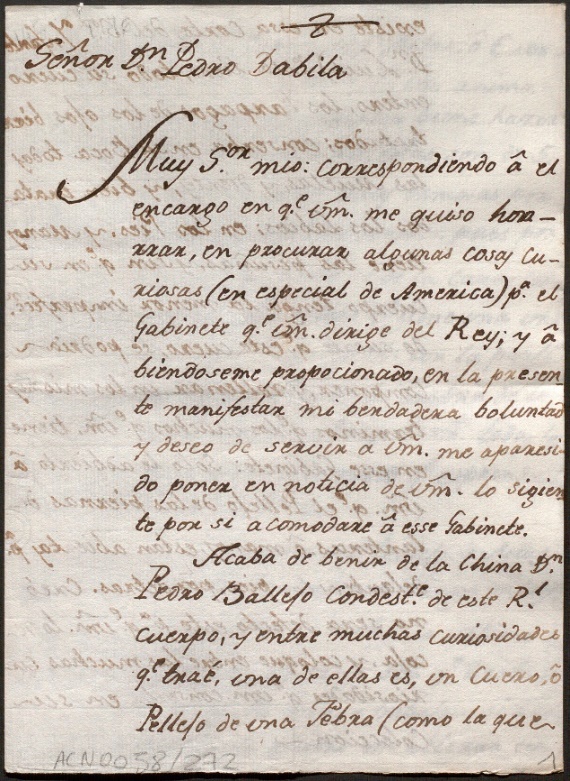 Señor Dn Pedro Dabila
Muy S.or mio: correspondiendo â el
encargo en q.e Vm. me quiso hon-
rrar, en procurar algunas cosas cu-
riosas (en especial de America) p.a el
Gabinete q.e Vm. dirige del Rey; y â
biendoseme propocionado, en la presen
te manifestar mi berdadera boluntad
y deseo de servir a Vm. me aparesi-
do poner en noticia de Vm. lo sigien
te por si acomodare â esse Gabinete.
Acaba de benir de la China Dn.
Pedro Balleso Condest.e de este R.l
Cuerpo, y entre muchas curiosidades
q.e traé, una de ellas es, un Cuero, ô
Pelleso de una Zebra (como la que
ACN0058/272
1